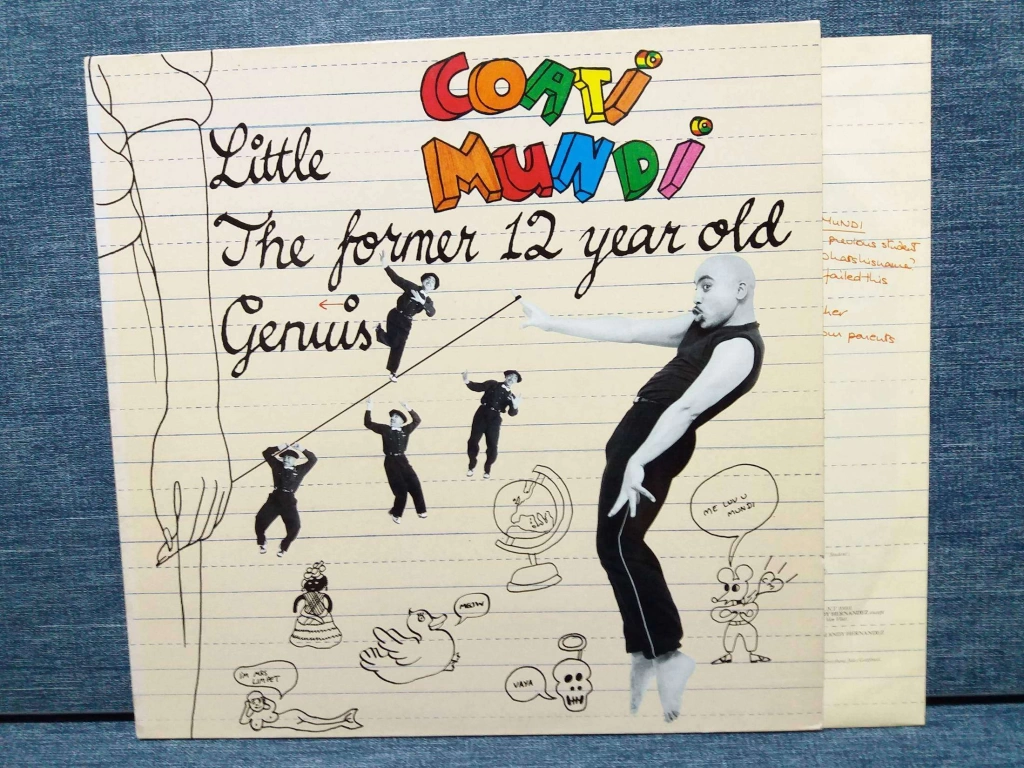 COATI
MUNDI
Little
The former 12 year old
Genius
ME LUV U
MUNDI
MEOW
I'M MRS
LIMPET
VAYA
MUNDI
precious student
failed this
our parents
HERNANDEZ